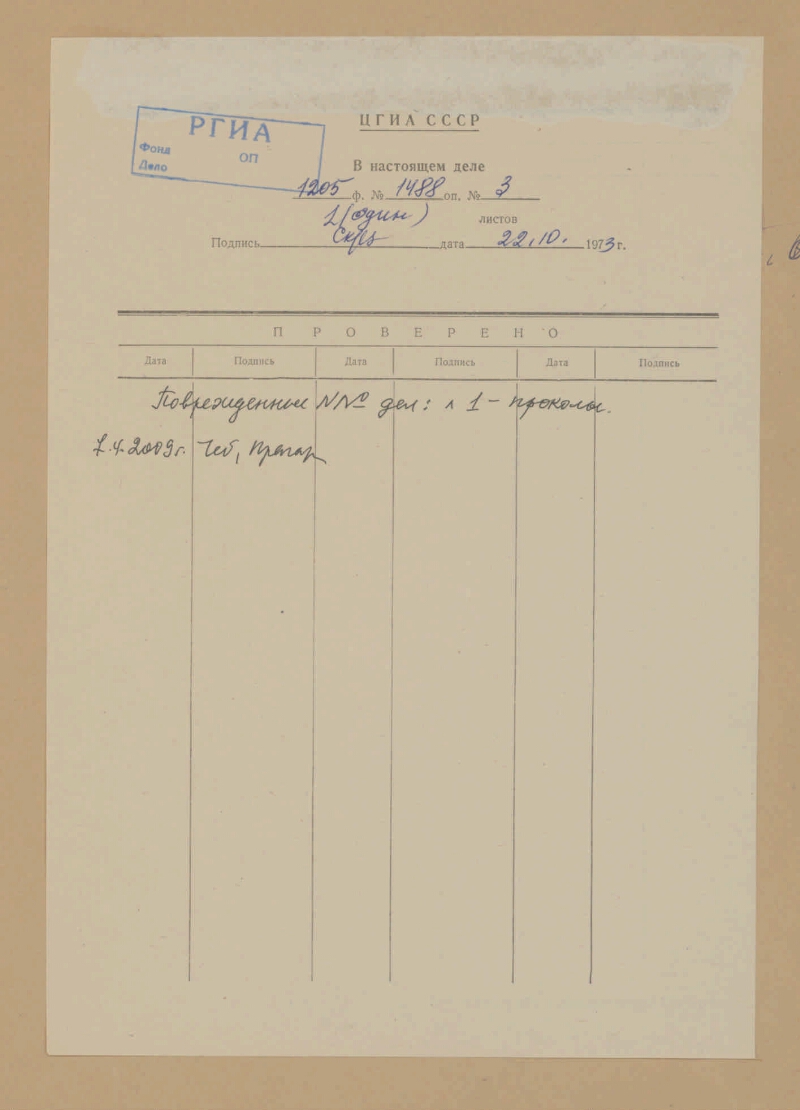 РГИА
Фонд
оп
Дело
ЦГИА СССР
В настоящем деле
1205 ф. № 1488 оп. № 3
1 (один) листов
Подпись дата 22.10. 1973 г.
ПРОВЕРЕНО
Дата Подпись Дата Подпись Дата Подпись
Поврежденные №№ дел: л 1 - проколы.
4.2009г.